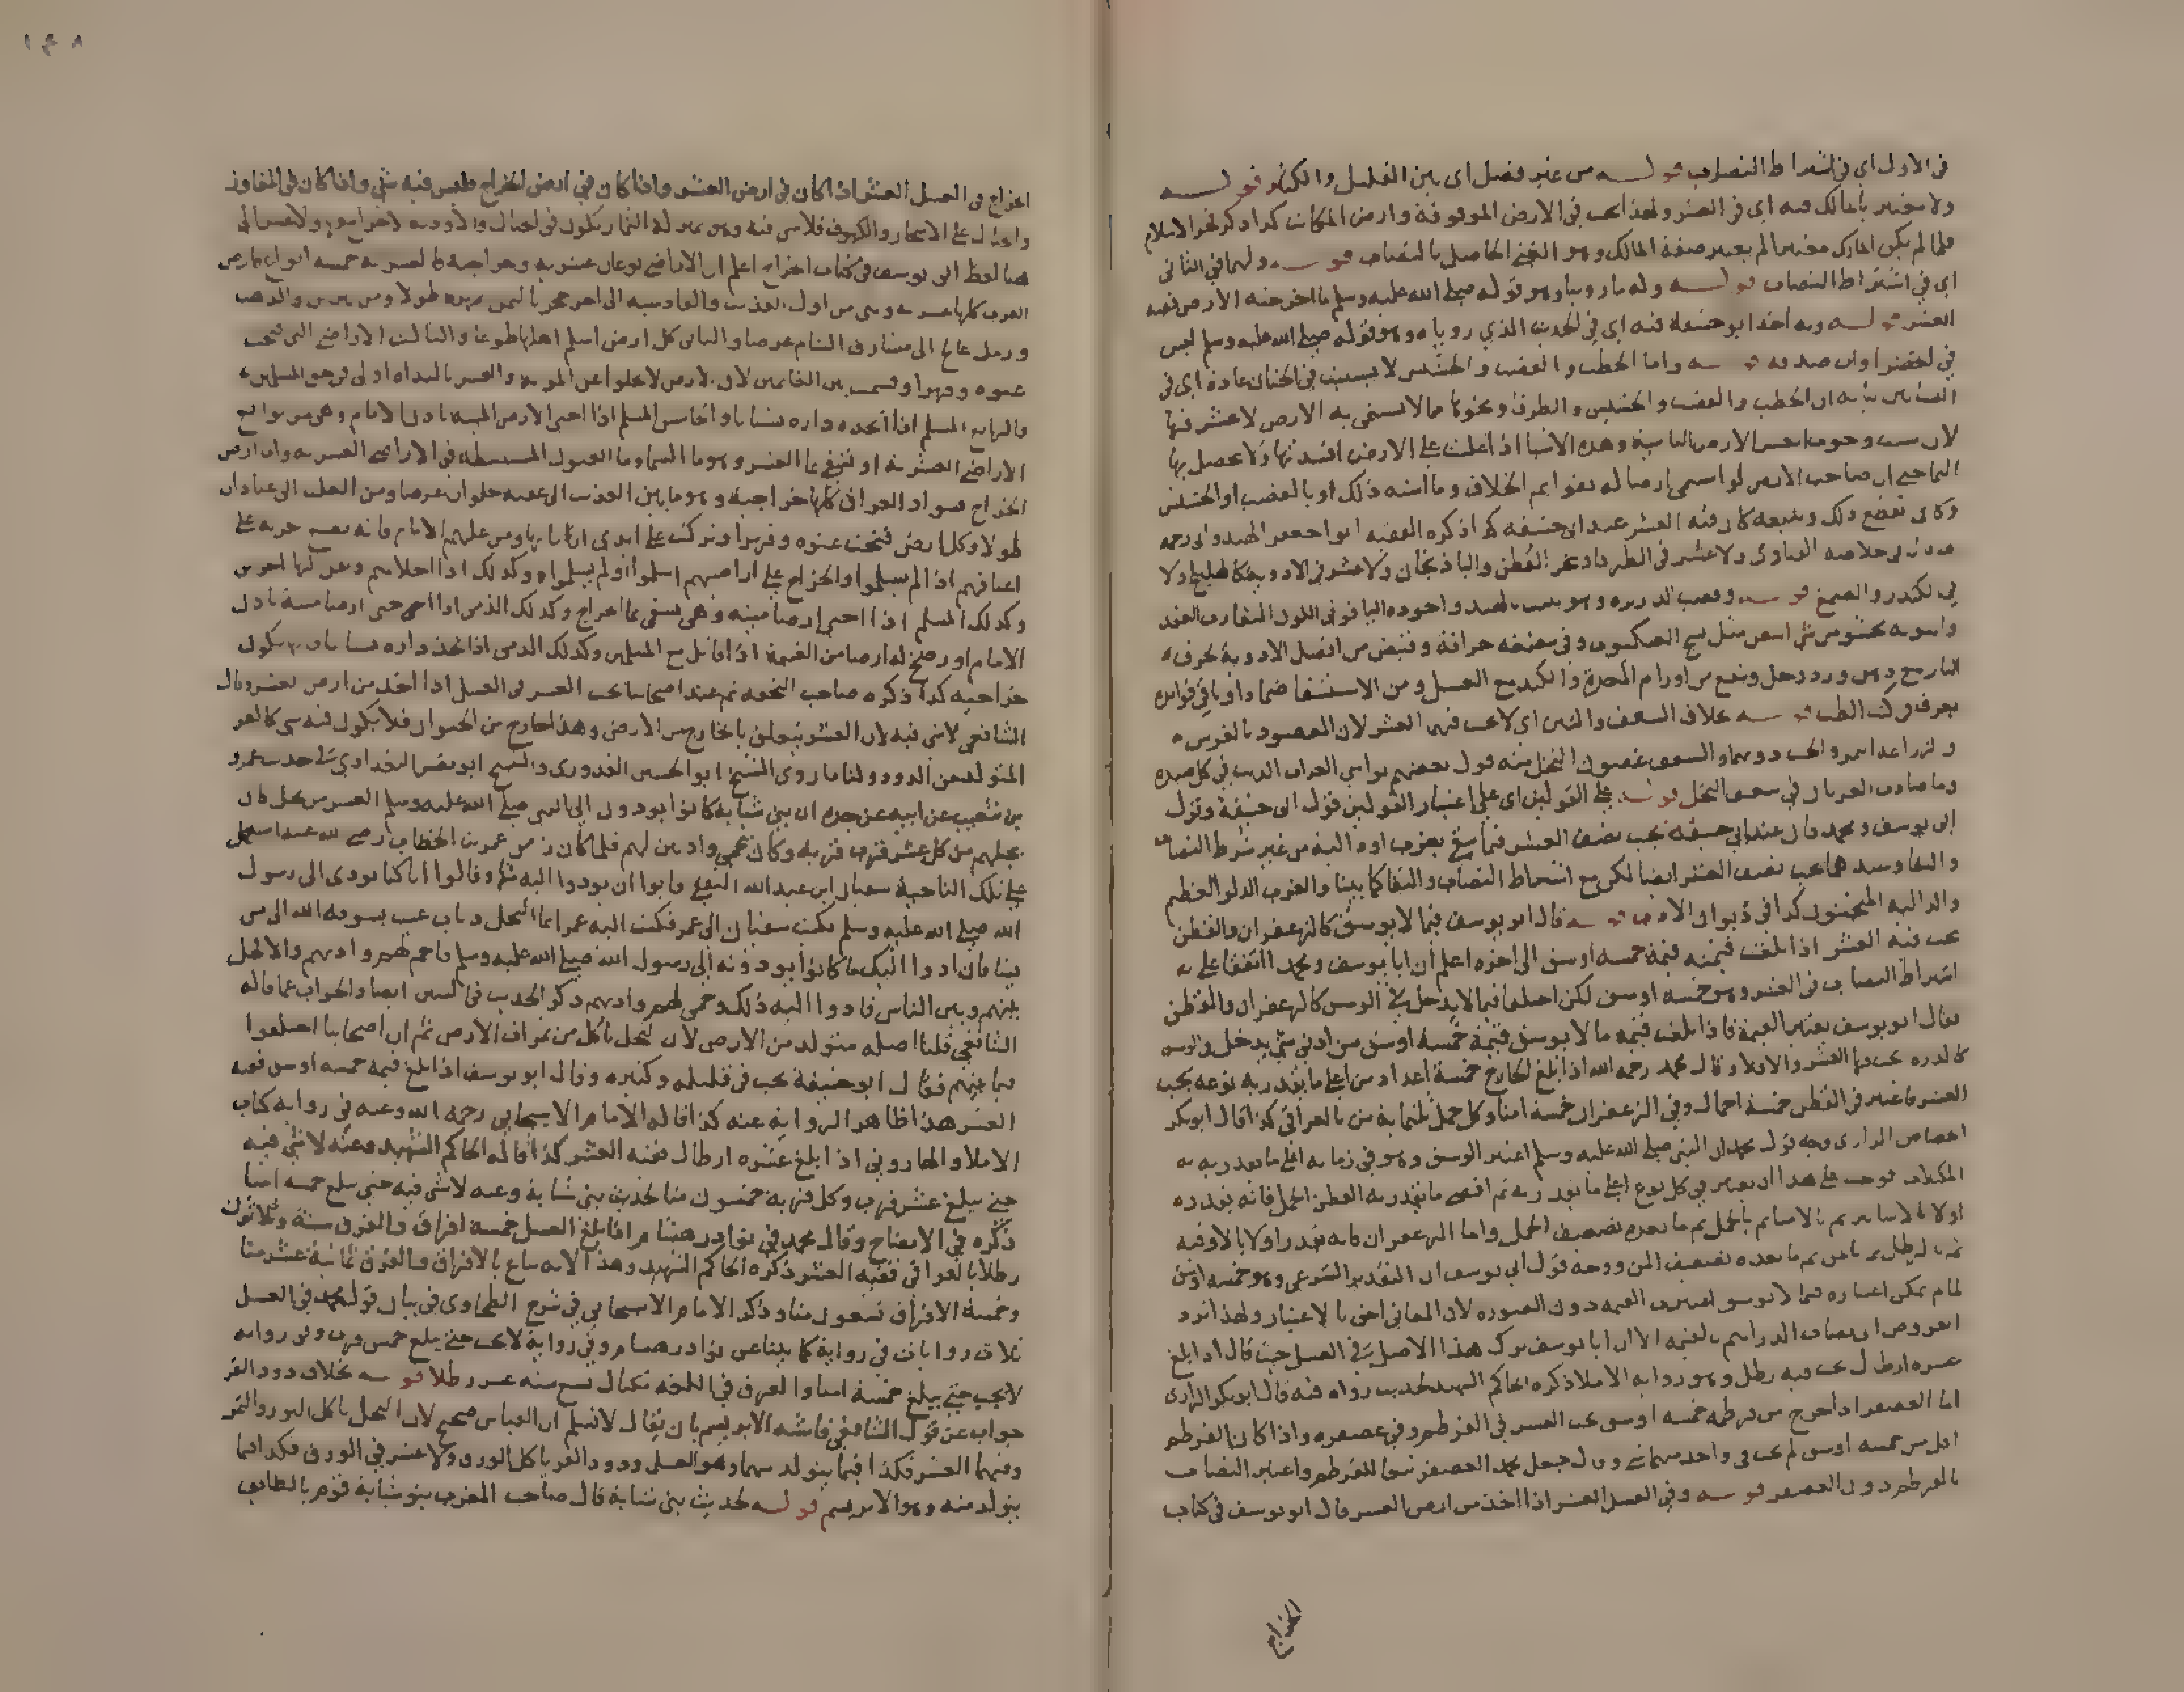 في الاول اي في اشتراط النصاب قوله من غير فصل اي بين القليل والكثير قوله
ولا معتبر بالمالك فيه اي في العشر ولهذا يجب في الارض الموقوفة وارض المكاتب كذا ذكر فخر الاسلام
فلما لم يكن المالك معتبرا لم يعتبر صفة المالك وهو الغني الحاصل بالنصاب قوله ولهما في الثاني
اي في اشتراط النصاب قوله وله ما روينا وهو قوله صلى الله عليه وسلم ما اخرجته الارض ففيه
العشر قوله وبه اخذ ابو حنيفة فيه اي في الحديث الذي روياه وهو قوله صلى الله عليه وسلم ليس
في الخضراوات صدقة قوله واما الحطب والقصب والحشيش لا يستنبت في الجنان عادة اي في
البساتين ان الحطب والقصب والحشيش والطرفا ونحوها مما لا يستنمى به الارض لا عشر فيها
لان سبب وجوب العشر الارض النامية وهذه الاشيا اذا غلبت على الارض افسدتها ولا يحصل بها
النما حتى ان صاحب الارض لو استنمى ارضا له بقوائم الخلاف وما اشبه ذلك او بالقصب او الحشيش
وكان يقطع ذلك ويبيعه كان فيه العشر عند ابي حنيفة كذا ذكره الفقيه ابو جعفر الهندواني رحمه
خلاصة الفتاوى ولا عشر في بزر القطن والباذنجان ولا عشر في الادوية كالهليلج ولا
في الكندر والصمغ قوله وقصب الذريرة وهو بالهند واجوده الياقوتي اللون المتقارب العقد
وانبوبه محشو من شي ابيض مثل نسج العنكبوت وفي مضغه حرافة وقبض من افضل الادوية لحرق
النار مع دهن ورد وخل وينفع من اورام المعدة والكبد مع العسل ومن الاستسقا ضمادا وباقي فوائده
يعرف في كتب الطب قوله بخلاف السعف والتبن اي لا يجب فيهما العشر لان المقصود
وما صادف في سعف النخل قوله على القولين اي على اعتبار القولين قول ابي حنيفة وقول
ابي يوسف ومحمد فان عند ابي حنيفة يجب نصف العشر فيما سقي بغرب او دالية من غير شرط النصاب
والبقا وعندهما يجب نصف العشر ايضا لكن مع اشتراط النصاب والبقا كما بينا والغرب الدلو العظيم
والدالية المنجنون كذا في ديوان الادب قوله قال ابو يوسف فيما لا يوسق كالزعفران والقطن
يجب فيه العشر اذا بلغت قيمته قيمة خمسة اوسق الى اخره اعلم ان ابا يوسف ومحمدا اتفقا على
اشتراط النصاب في العشر وهو خمسة اوسق لكن اختلفا فيما لا يدخل تحت الوسق كالزعفران والقطن
فقال ابو يوسف يعتبر القيمة فاذا بلغت قيمة ما لا يوسق قيمة خمسة اوسق من ادنى شي يدخل في الوسق
كالذرة يجب فيها العشر والا فلا وقال محمد رحمه الله اذا بلغ الخارج خمسة اعداد من اعلى ما يقدر به نوعه يجب
العشر فاعتبر في القطن خمسة احمال وفي الزعفران خمسة امنا وكل حمل ثلثماية من بالعراقي كذا قال ابو بكر
الرازي وجه قول محمد ان النبي صلى الله عليه وسلم اعتبر الوسق وهو في زمانه اعلى ما يقدر به
المكيلات فوجب على هذا ان يعتبر في كل نوع اعلى ما يقدر به ثم اقصى ما يقدر به القطن الحمل فانه يقدر
اولا بالاساتير ثم بالامنا ثم بالحمل ثم ما بعده تضعيف الحمل واما الزعفران فانه يقدر اولا بالاوقية
ثم بالرطل ثم بالمن ثم ما بعده تضعيف المن ووجه قول ابي يوسف ان التقدير الشرعي وهو خمسة اوسق
لما لم يمكن اعتباره فيما لا يوسق اعتبرت القيمة دون الصورة لان المعاني احق بالاعتبار ولهذا
العروض ان نصاب الدراهم بالقيمة الا ان ابا يوسف ترك هذا الاصل في العسل حيث قال اذا بلغ
عشرة ارطال يجب فيه رطل وهو رواية الاملا ذكره الحاكم الشهيد لحديث رواه فيه قال ابو بكر الرازي
اما العصفر اذا خرج من قرطمه خمسة اوسق يجب العشر في القرطم وفي عصفره واذا كان القرطم
اقل من خمسة اوسق لم يجب في واحد منهما شي وقال جعل محمد العصفر تبعا للقرطم واعتبر النصاب
بالقرطم دون العصفر قوله وفي العسل العشر اذا اخذ من ارض العشر قال ابو يوسف في كتاب
الخراج
١٤٨
الخراج في العسل العشر اذا كان في ارض العشر واذا كان في ارض الخراج فليس فيه شي واذا كان في المفاوز
والجبال على الاشجار والكهوف فلا شي فيه وهو بمنزلة الثمار تكون في الجبال والاودية لا خراج عليها ولا عشر الى
هنا لفظ ابي يوسف في كتاب الخراج اعلم ان الاراضي نوعان عشرية وخراجية فالعشرية خمسة انواع ارض
العرب كلها عشرية وهي من اول العذيب والقادسية الى اخر حجر باليمن بمهرة طولا ومن يبرين والدهنا
ورمل عالج الى مشارف الشام عرضا والثاني كل ارض اسلم اهلها طوعا والثالث الاراضي التي فتحت
عنوة وقهرا وقسمت بين الغانمين لان الارض لا تخلوا عن المونة والعشر بالبداة اولى في حق المسلمين
والرابع المسلم اذا اتخذ داره بستانا والخامس المسلم اذا احيى الارض الميتة باذن الامام وهي من توابع
الاراضي العشرية او تسقى بما العشر وهو ما السما وما العيون المستنبطة في الاراضي العشرية واما ارض
الخراج فسواد العراق كلها خراجية وهو ما بين العذيب الى عقبة حلوان عرضا ومن العلث الى عبادان
طولا وكل ارض فتحت عنوة وقهرا وتركت على ايدي اربابها ومن عليهم الامام فانه يضع جزية على
اعناقهم اذا لم يسلموا والخراج على اراضيهم اسلموا او لم يسلموا وكذلك اذا اجلاهم ونقل اليها اخرين
وكذلك المسلم اذا احيى ارضا ميتة وهي تسقى بما الخراج وكذلك الذمي اذا احيى ارضا ميتة باذن
الامام او رضخ له ارضا من الغنيمة اذا قاتل مع المسلمين وكذلك الذمي اذا اتخذ داره بستانا تكون
خراجية كذا ذكره صاحب التحفة ثم عند اصحابنا يجب العشر في العسل اذا اخذ من ارض العشر وقال
الشافعي لا شي فيه لان العشر يتعلق بالخارج من الارض وهذا خارج من الحيوان فلا يكون فيه شي كالقز
المتولد من الدود ولنا ما روى الشيخ ابو الحسين القدوري والشيخ ابو نصر البغدادي في حديث عمرو
بن شعيب عن ابيه عن جده ان بني شبابة كانوا يودون الى النبي صلى الله عليه وسلم العشر من نحل كان
بجبلهم من كل عشر قرب قربة وكان يحمي واديين لهم فلما كان زمن عمر بن الخطاب رضي الله عنه استعمل
على تلك الناحية سفيان ابن عبد الله الثقفي فابوا ان يودوا اليه شيا وقالوا انا كنا نودي الى رسول
الله صلى الله عليه وسلم فكتب سفيان الى عمر فكتب اليه عمر انما النحل ذباب غيث يسوقه الله الى من
يشا فان ادوا اليك ما كانوا يودونه الى رسول الله صلى الله عليه وسلم فاحم لهم واديهم والا فخل
بينهم وبين الناس فادوا اليه ذلك وحمى لهم واديهم ذكر الحديث في السنن ايضا والجواب عما قاله
الشافعي قلنا اصله متولد من الارض لان النحل تاكل من نوار الارض ثم ان اصحابنا اختلفوا
فيما بينهم فقال ابو حنيفة يجب في قليله وكثيره وقال ابو يوسف اذا بلغ قيمة خمسة اوسق ففيه
العشر هذا ظاهر الرواية عنه كذا قاله الامام الاسبيجابي رحمه الله وعنه في رواية كتاب
الاملا والهاروني اذا بلغ عشرة ارطال ففيه العشر كذا قاله الحاكم الشهيد وعنه لا شي فيه
حتى يبلغ عشر قرب وكل قربة خمسون منا لحديث بني شبابة وعنه لا شي فيه حتى يبلغ خمسة امنا
ذكره في الايضاح وقال محمد في نوادر هشام اذا بلغ العسل خمسة افراق والفرق ستة وثلاثون
رطلا بالعراقي ففيه العشر ذكره الحاكم الشهيد وهذا لانه يباع بالافراق والفرق ثمانية عشر منا
وخمسة الافراق تسعون منا وذكر الامام الاسبيجابي في شرح الطحاوي في بيان قول محمد في العسل
ثلاث روايات في رواية كما بينا عن نوادر هشام وفي رواية لا يجب حتى يبلغ خمس قرب وفي رواية
لا يجب حتى يبلغ خمسة امنا والفرق في اللغة مكيال يسع ستة عشر رطلا قوله بخلاف دود القز
جواب عن قول الشافعي فاشبه الابريسم بان يقال لا نسلم ان القياس صحيح لان النحل ياكل النور والثمر
وفيهما العشر فكذا فيما يتولد منهما وهو العسل ودود القز ياكل الورق ولا عشر في الورق فكذا فيما
يتولد منه وهو الابريسم قوله لحديث بني شبابة قال صاحب المغرب بنو شبابة قوم بالطائف